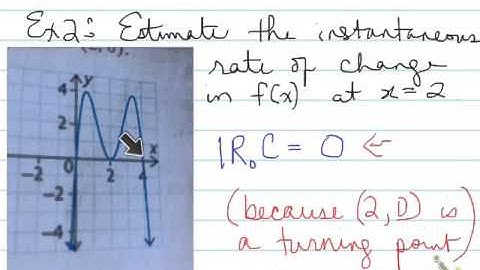 Ex2: Estimate the instantaneous
rate of change
in f(x) at x = 2
IRoC = 0 ←
(because (2,0) is
a turning point)
y
4
2
x
-2 0 2 4
-2
-4